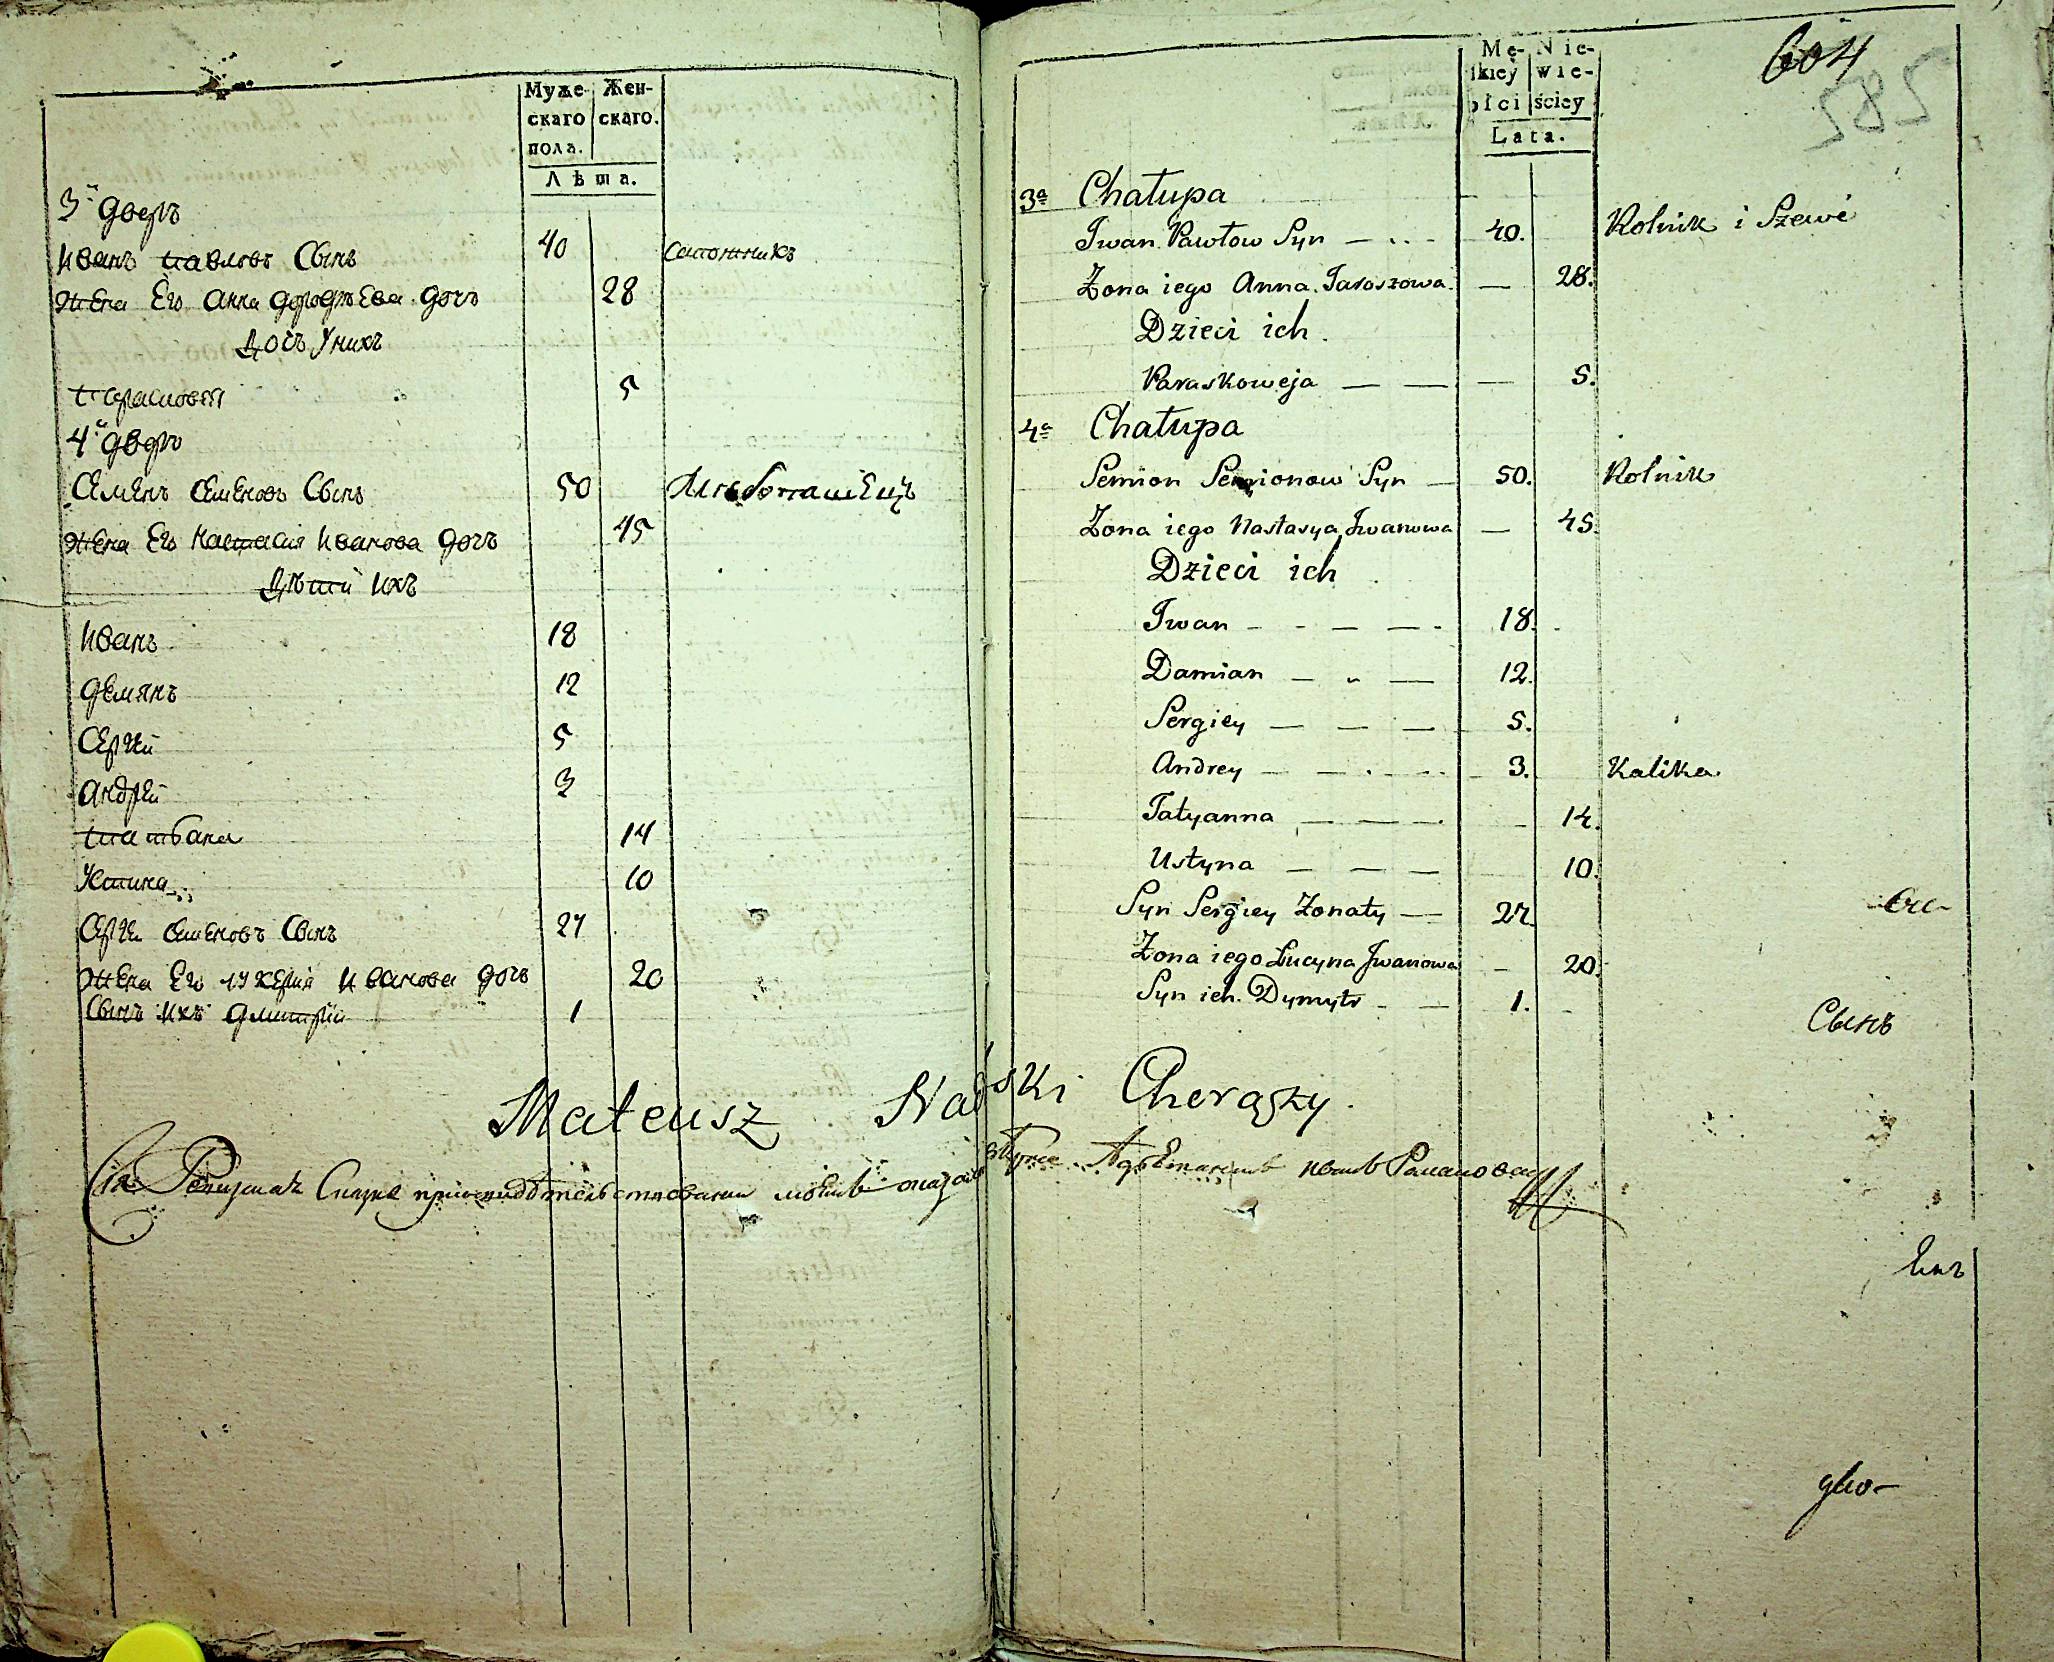 Муже-
скаго
пола.
Жен-
скаго.
Лѣта.
3й дворъ
Иванъ павловъ Сынъ 40 сапожникъ
жена Его анна дорофѣева дочь 28
Дочь Унихъ
Парасковея 5
4й дворъ
Семенъ семеновъ Сынъ 50 Хлебопашецъ
жена Его настасія Иванова дочь 45
Дѣти ихъ
Иванъ 18
демянъ 12
Сергей 5
андрей 3
татьяна 14
Устина 10
Сергей семеновъ Сынъ 27
жена Его лукерія Иванова дочь 20
Сынъ ихъ дмитрій 1
Mateusz Chorąży.
Сія Ревизская Сказка
604
585
Mę-
skiey
płci
Nie-
wie-
ściey
Lata.
3a Chałupa
Iwan Pawłow Syn 40. Rolnik i Szewc
Żona iego Anna Jaroszowa — 28.
Dzieci ich.
Paraskoweja — — — 5.
4a Chałupa
Semion Semionow Syn — 50. Rolnik
Żona iego Nastasya Iwanowa — 45.
Dzieci ich
Iwan 18.
Damian 12.
Sergiey — — — 5.
Andrey 3. Kalika
Tatyanna 14.
Ustyna — — — 10.
Syn Sergiey Żonaty — 27.
Żona iego Lucyna Iwanowa — 20.
Syn ich Dymytr 1.
Сынъ